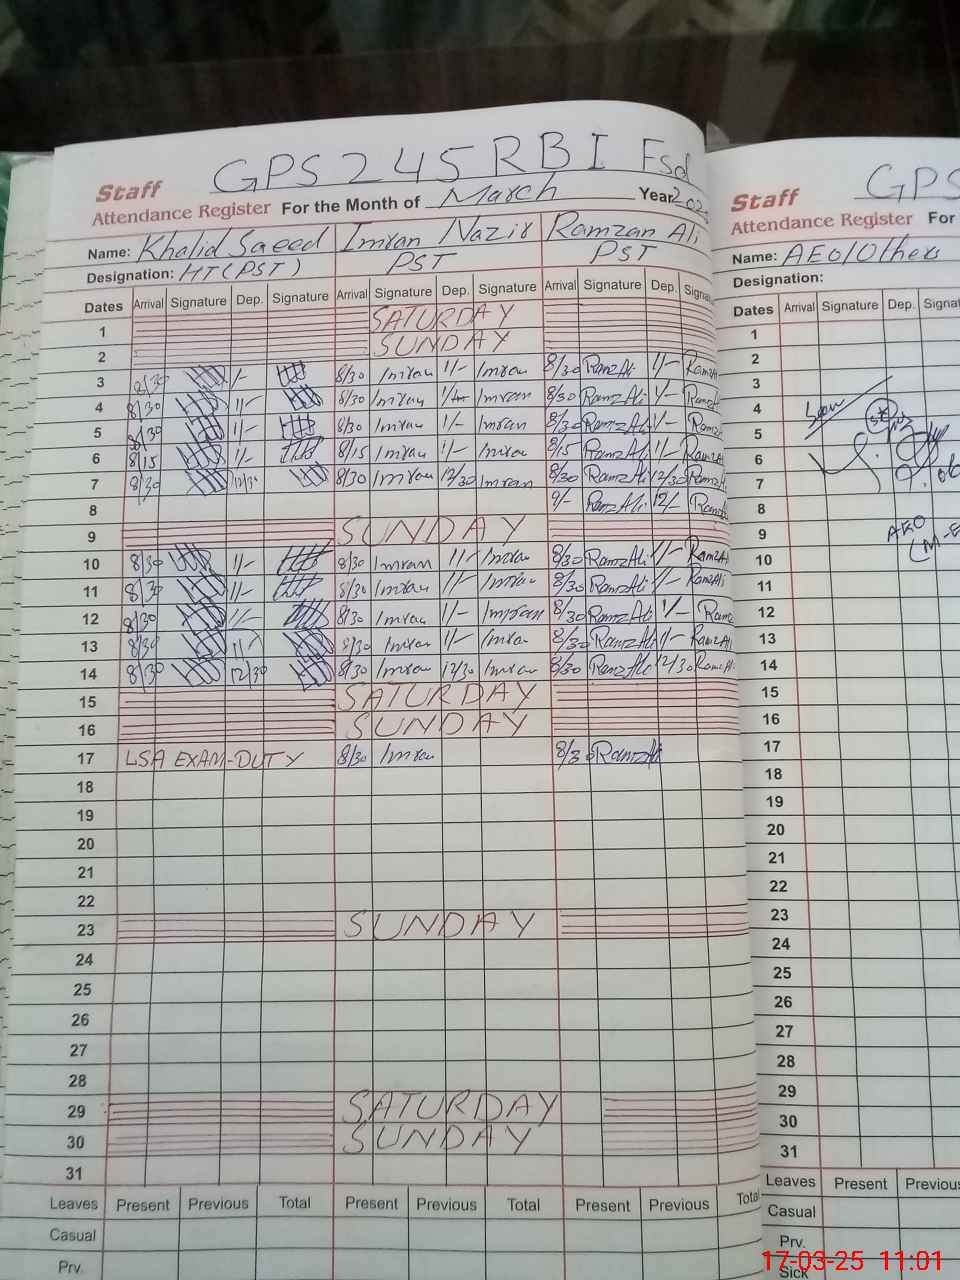 GPS 245 RB I Fsd
Staff
Attendance Register For the Month of March Year 202
Name: Khalid Saeed Imran Nazir Ramzan Ali
Designation: HT (PST) PST PST
Dates Arrival Signature Dep. Signature Arrival Signature Dep. Signature Arrival Signature Dep. Signat
1 SATURDAY
2 SUNDAY
3 8/30 1/- 8/30 Imran 1/- Imran 8/30 RamzAli 1/- RamzAli
4 8/30 1/- 8/30 Imran Imran 8/30 RamzAli 1/- RamzA
5 8/30 1/- 8/30 Imran 1/- Imran 8/30 RamzAli 1/- Ramz
6 8/15 1/- 8/15 Imran 1/- Imran 8/15 RamzAli 1/- RamzA
7 8/30 12/30 8/30 Imran 12/30 Imran 8/30 RamzAli 12/30 RamzA
8 9/- RamzAli 12/- Ramz
9 SUNDAY
10 8/30 1/- 8/30 Imran 1/- Imran 8/30 RamzAli 1/- RamzAli
11 8/30 1/- 8/30 Imran 1/- Imran 8/30 RamzAli 1/- RamzAli
12 8/30 1/- 8/30 Imran 1/- Imran 8/30 RamzAli 1/- Ramz
13 8/30 1/- 8/30 Imran 1/- Imran 8/30 RamzAli 1/- RamzAli
14 8/30 12/30 8/30 Imran 12/30 Imran 8/30 RamzAli 12/30 RamzAli
15 SATURDAY
16 SUNDAY
17 LSA EXAM-DUTY 8/30 Imran 8/30 RamzAli
18
19
20
21
22
23 SUNDAY
24
25
26
27
28
29 SATURDAY
30 SUNDAY
31
Leaves Present Previous Total Present Previous Total Present Previous Total
Casual
Prv.
GPS
Staff
Attendance Register For
Name: AEO/Others
Designation:
Dates Arrival Signature Dep. Signat
1
2
3
4
5
6
7
8
9 AEO
10
11
12
13
14
15
16
17
18
19
20
21
22
23
24
25
26
27
28
29
30
31
Leaves Present Previous
Casual
Prv.
Sick
17-03-25 11:01